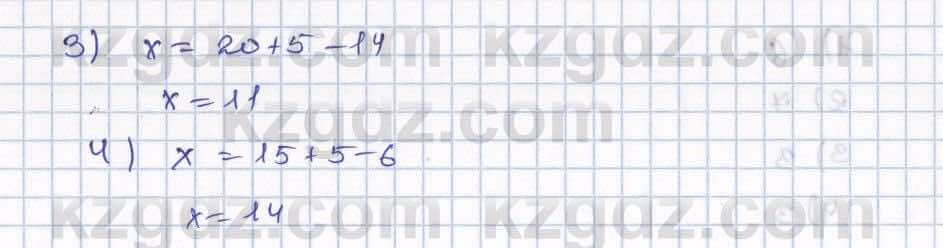 3) x = 20 + 5 - 14
x = 11
4) x = 15 + 5 - 6
x = 14
kzgdz.com kzgdz.com
kzgdz.com
kzgdz.com kzgdz.com
kzgdz.com kzgdz.com